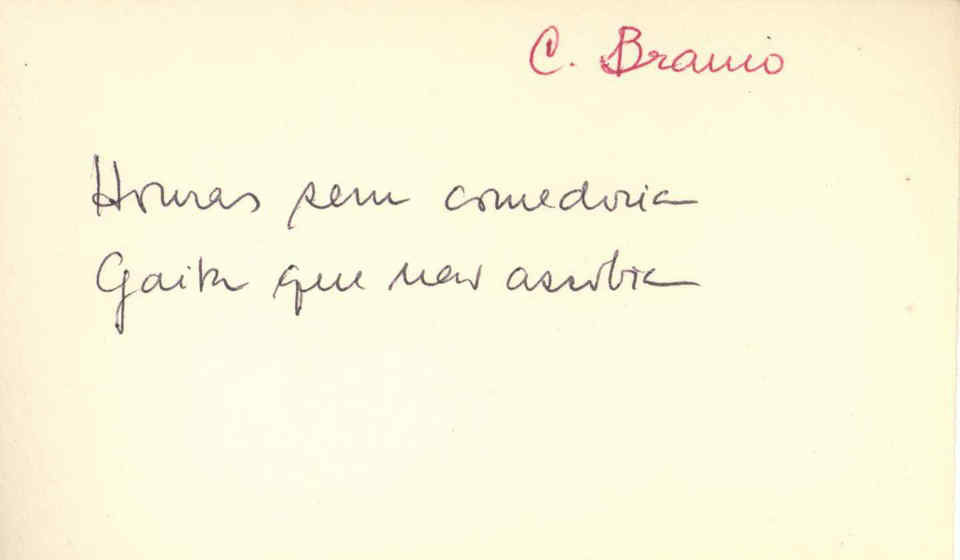 C. Branio
Honras sem comedoria
Gaita que não assobia